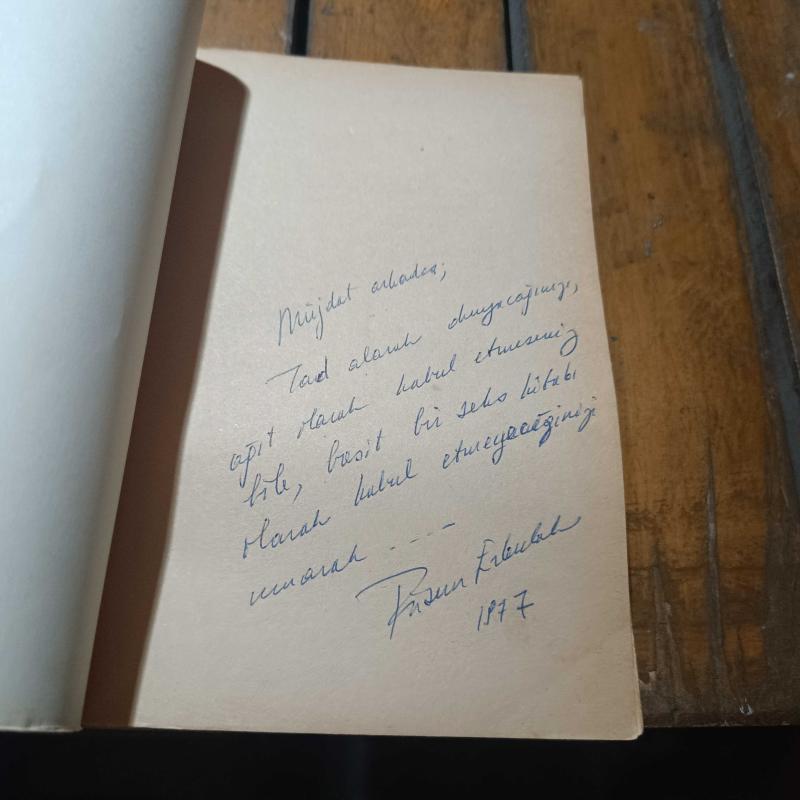 Müjdat arkadaş;
Tad alarak okuyacağınızı,
ağıt olarak kabul etmeseniz
bile, basit bir seks kitabı
olarak kabul etmeyeceğinizi
umarak ----
Erbulak
1977